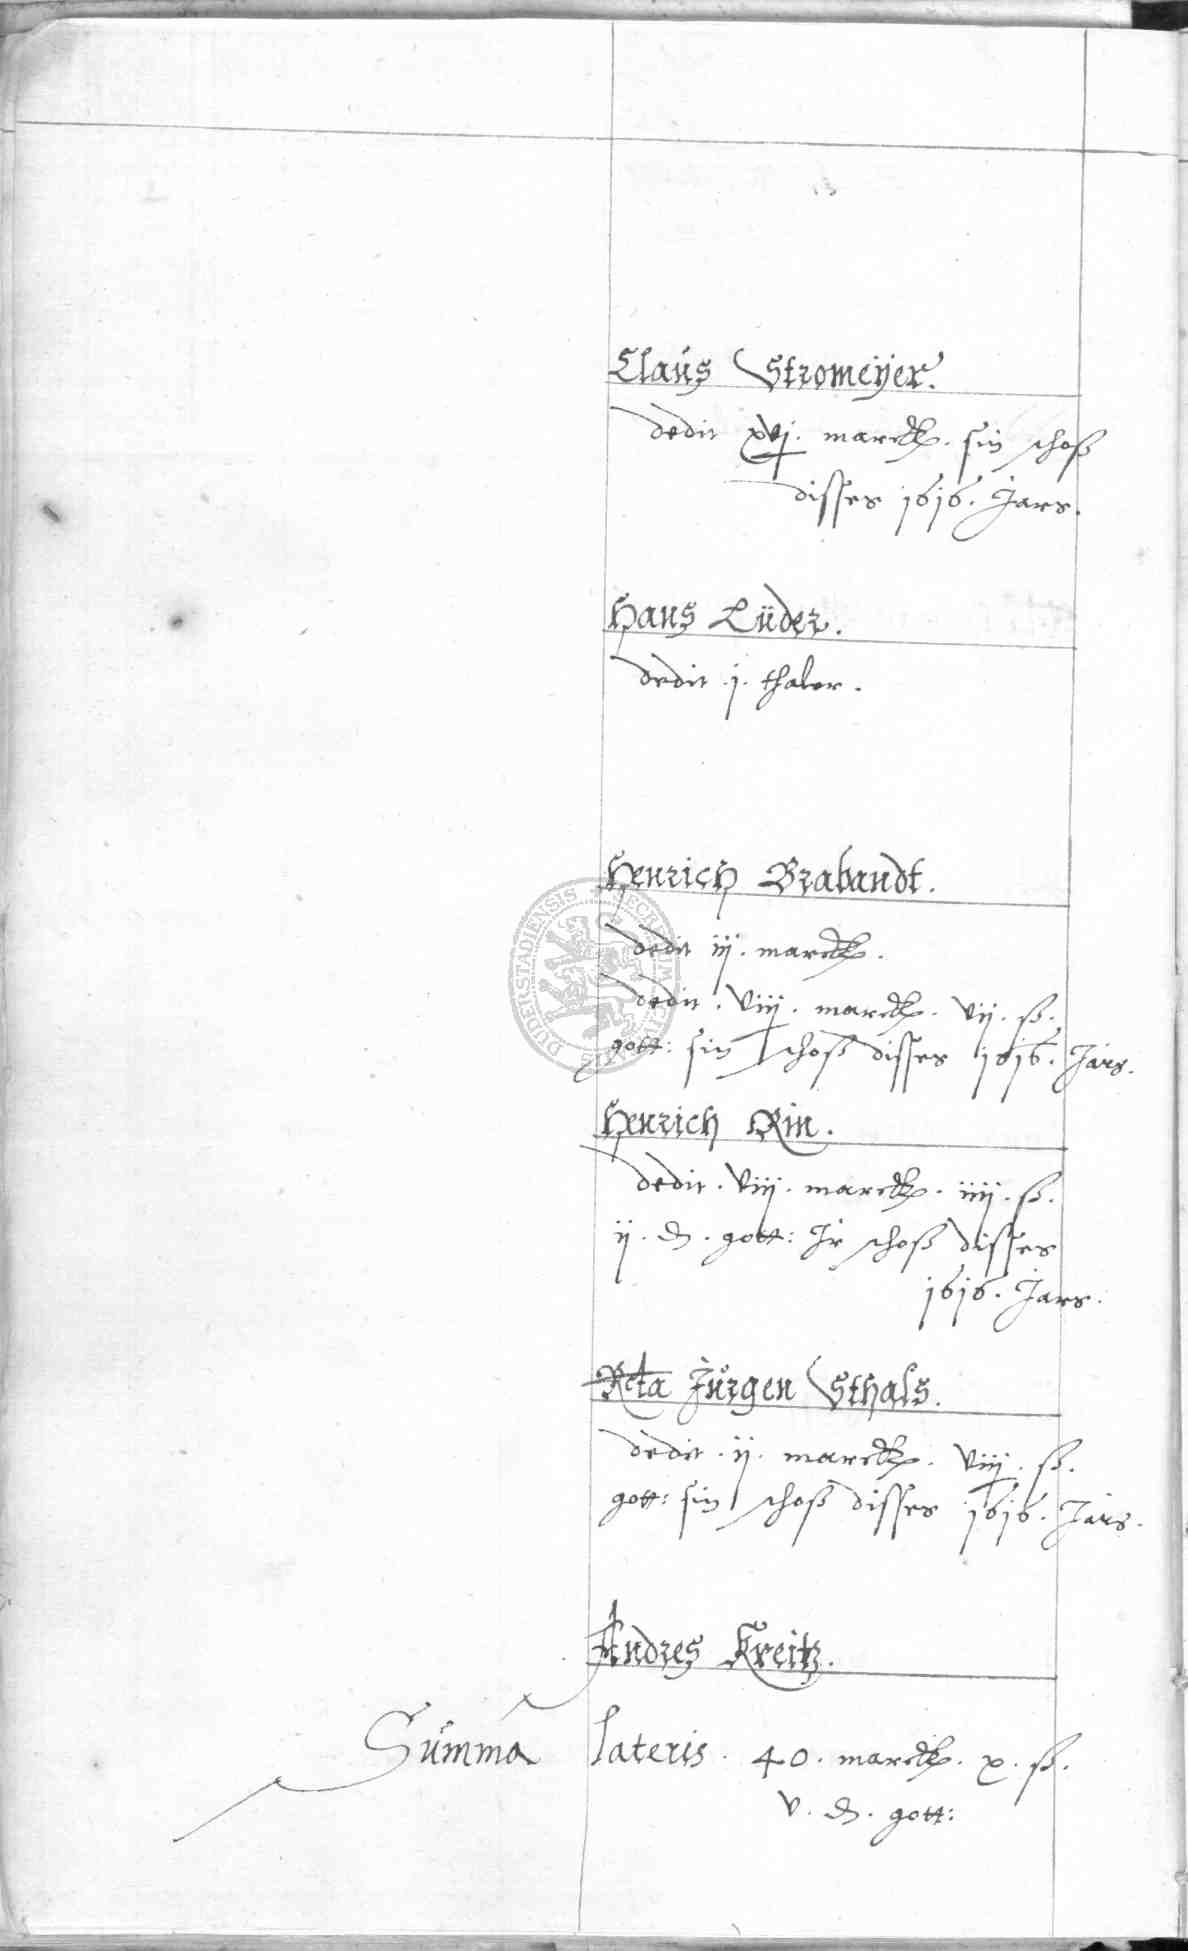 Claus Stromeÿer.
dedit xvj. marck. sin schoß
disses 1616. Jars.
Hans Lüder.
dedit .j. thaler.
Henrich Brabandt.
dedit iij. marck.
dedit. viij. marck. vij. ß.
gott: sin schoß disses 1616. Jars.
Henrich Rin.
dedit. viij. marck. iiij. ß.
ij. d. gott: Ir schoß disses
1616. Jars.
Rcta Jürgen Sthals.
dedit .ij. marck. viij. ß.
gott: sin schoß disses 1616. Jars.
Andres Kreitz.
Summa lateris. 40. marck. x. ß.
v. d. gott:
SECRETUM CIVITATIS DUDERSTADIENSIS